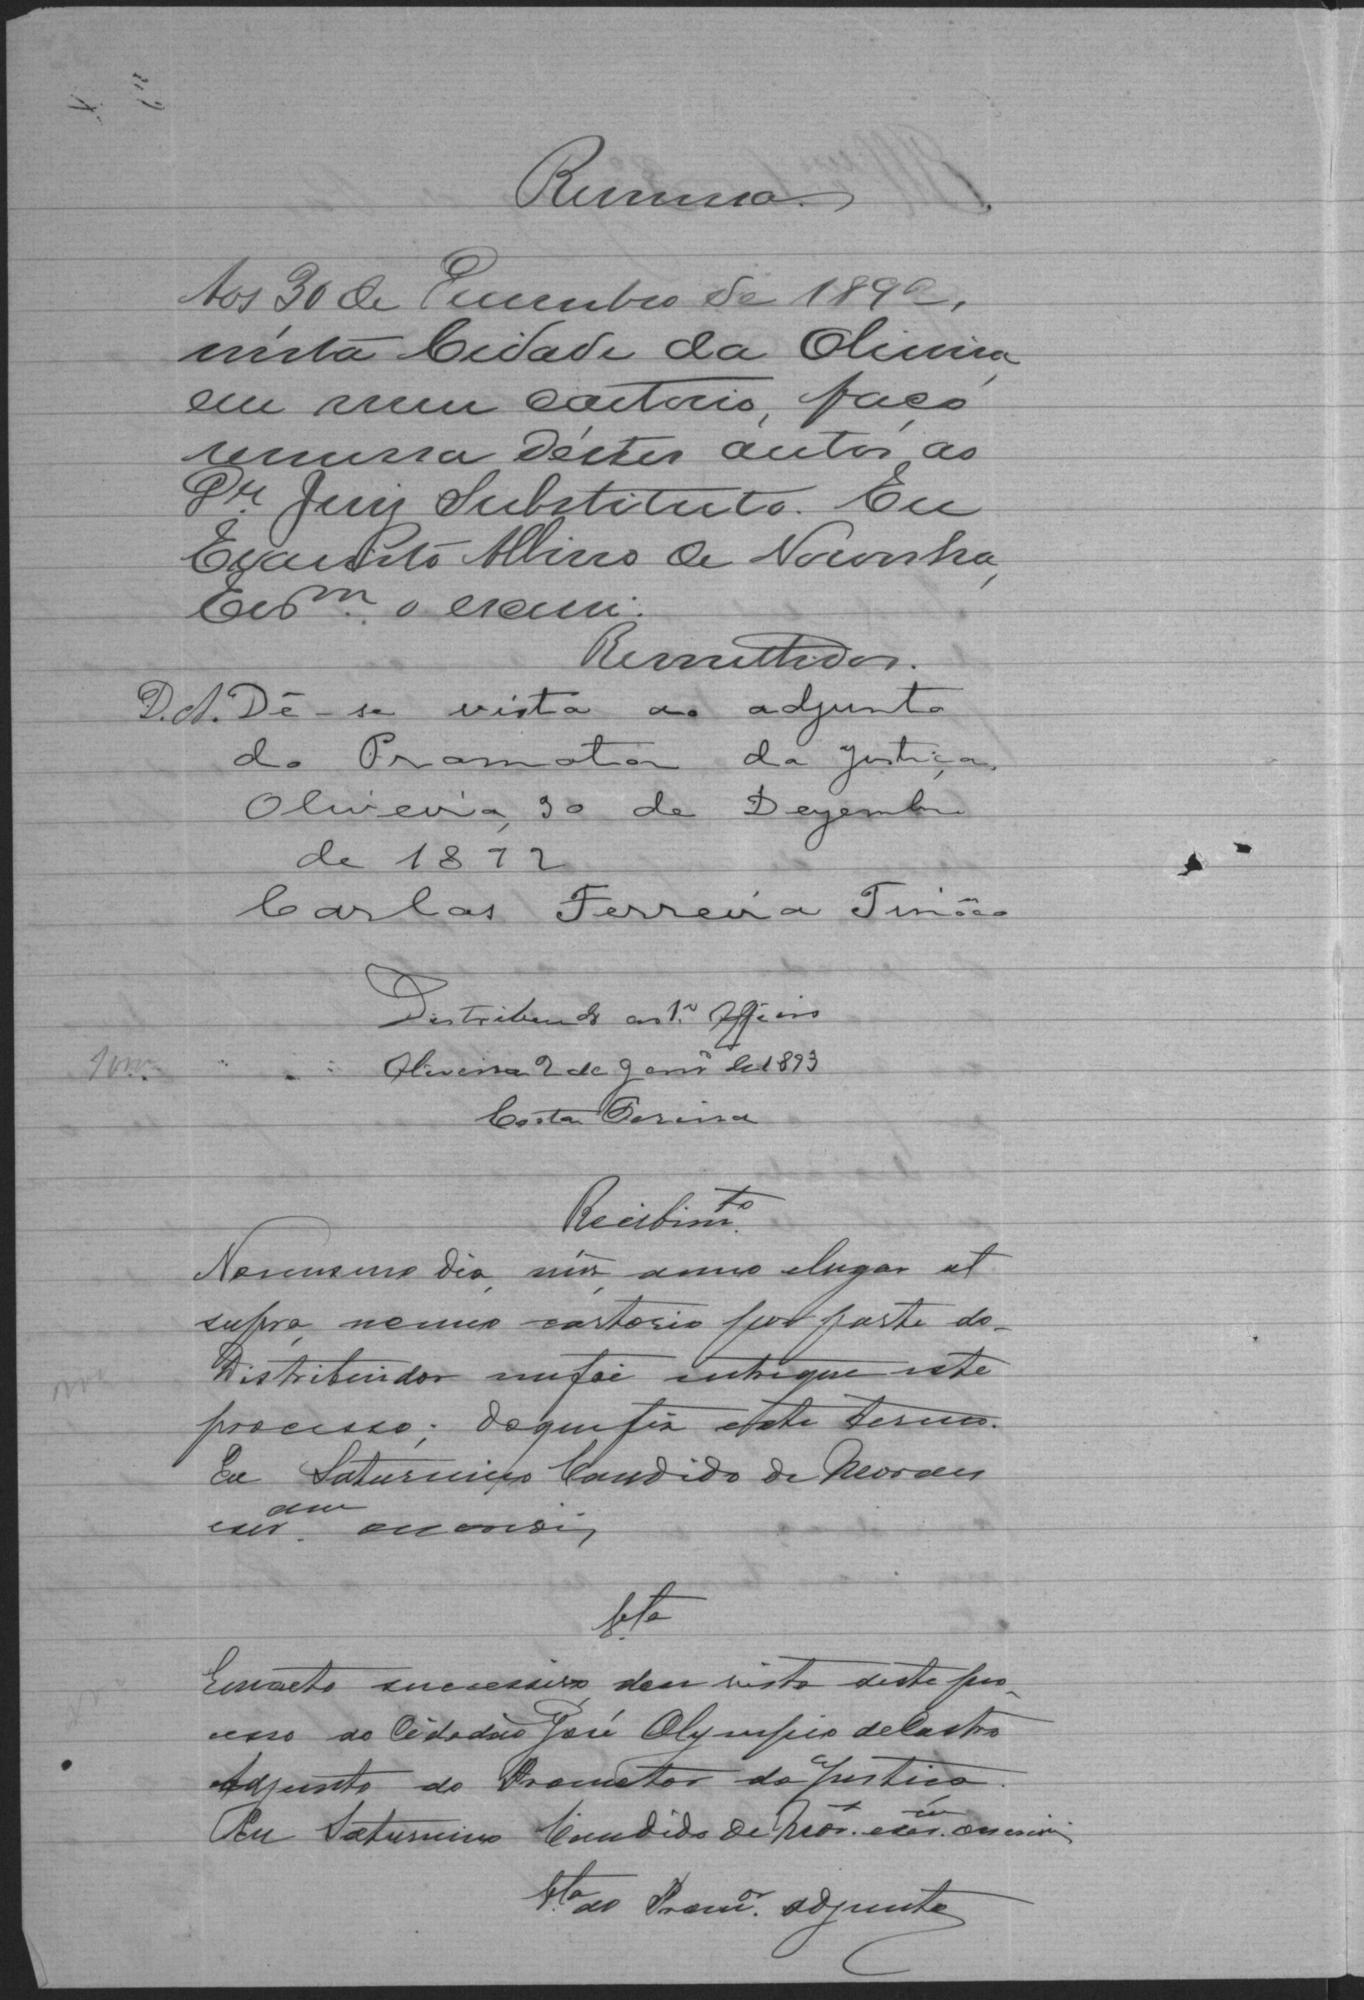 Remessa.
Aos 30 de Dezembro de 1892,
nésta Cidade da Oliveira
em meu cartorio, faço
remessa déstes autos ao
Dr. Juiz Substituto. Eu
Evaristo Albino de Noronha,
Escm. o escrevi.
Remettidos.
D. A. Dê-se vista ao adjunto
do Promotor da justiça.
Oliveira, 30 de Dezembro
de 1892
Carlos Ferreira Tinôco
Distribuido ao 1º Officio
Oliveira 2 de Janrº de 1893
Costa Pereira
Recebimto.
No mesmo dia, mês, anno e lugar ut
supra, no meu cartorio por parte do
Distribuidor me foi entregue este
processo; do que fiz este termo.
Eu Saturnino Candido de Moraes
escram. o escrevi,
Vta
Em acto successivo dou vista deste pro-
cesso ao Cidadão José Olympio de Castro
Adjunto do Promotor da Justiça.
Eu Saturnino Candido de Mos. escam. o escrevi
Vta ao Promor. adjunto